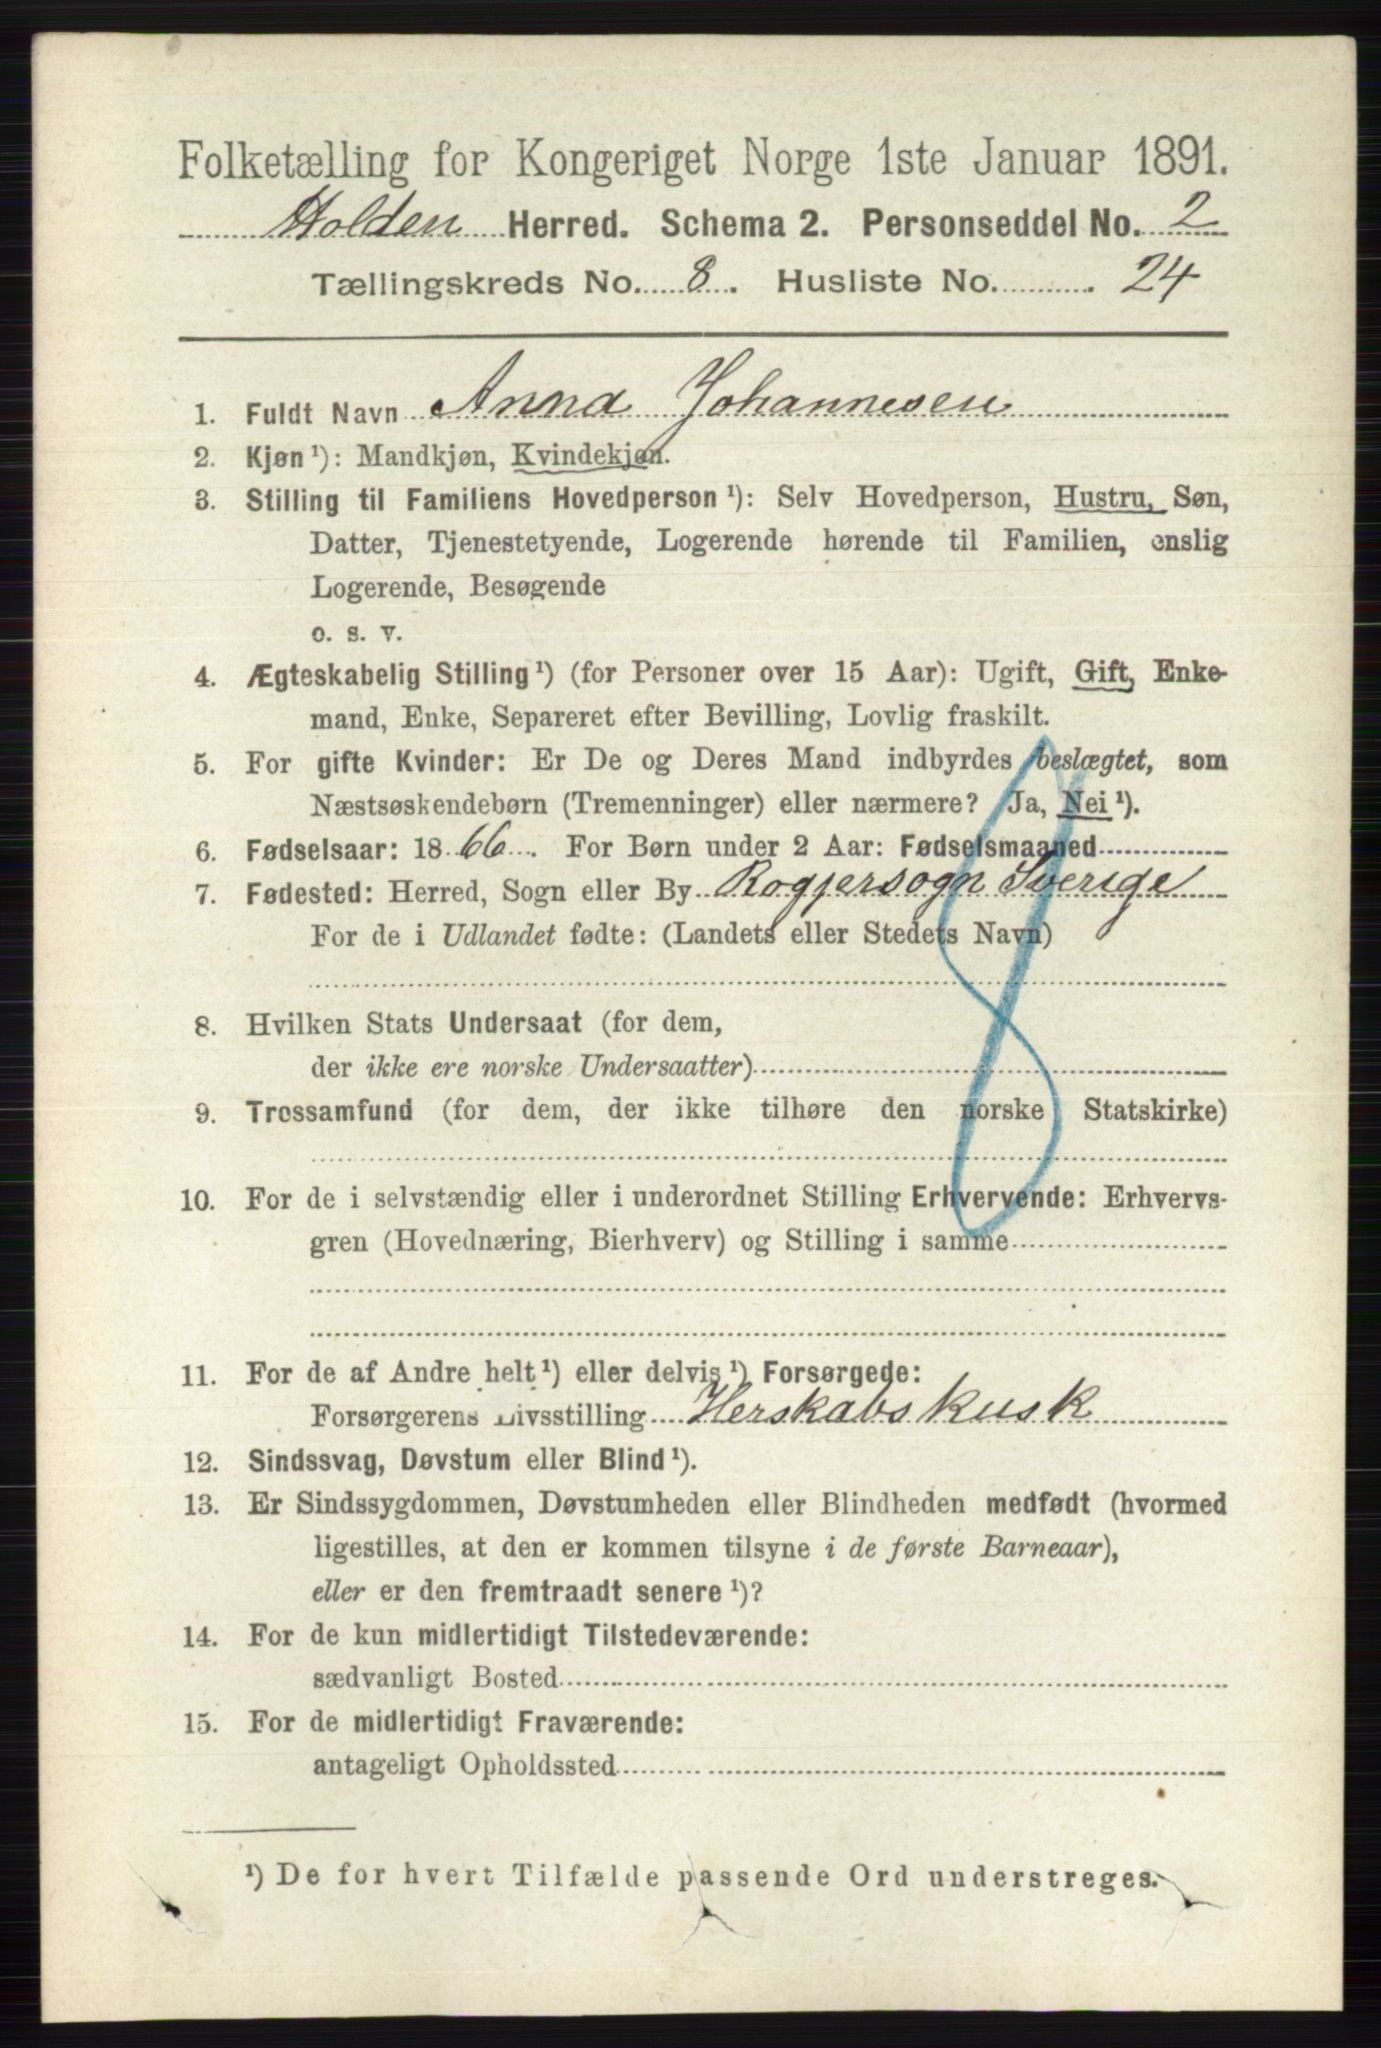 Folketælling for Kongeriget Norge 1ste Januar 1891.
Holden Herred. Schema 2. Personseddel No. 2
Tællingskreds No. 8. Husliste No. 24
1. Fuldt Navn Anna Johannesen
2. Kjøn¹): Mandkjøn, Kvindekjøn.
3. Stilling til Familiens Hovedperson¹): Selv Hovedperson, Hustru, Søn,
Datter, Tjenestetyende, Logerende hørende til Familien, enslig
Logerende, Besøgende
o. s. v.
4. Ægteskabelig Stilling¹) (for Personer over 15 Aar): Ugift, Gift, Enke-
mand, Enke, Separeret efter Bevilling, Lovlig fraskilt.
5. For gifte Kvinder: Er De og Deres Mand indbyrdes beslægtet, som
Næstsøskendebørn (Tremenninger) eller nærmere? Ja, Nei¹).
6. Fødselsaar: 1866. For Børn under 2 Aar: Fødselsmaaned
7. Fødested: Herred, Sogn eller By Rogjersogn Sverige
For de i Udlandet fødte: (Landets eller Stedets Navn)
8
8. Hvilken Stats Undersaat (for dem,
der ikke ere norske Undersaatter)
9. Trossamfund (for dem, der ikke tilhøre den norske Statskirke)
10. For de i selvstændig eller i underordnet Stilling Erhvervende: Erhvervs-
gren (Hovednæring, Bierhverv) og Stilling i samme
11. For de af Andre helt¹) eller delvis¹) Forsørgede:
Forsørgerens Livsstilling Herskabskusk
12. Sindssvag, Døvstum eller Blind¹).
13. Er Sindssygdommen, Døvstumheden eller Blindheden medfødt (hvormed
ligestilles, at den er kommen tilsyne i de første Barneaar),
eller er den fremtraadt senere¹)?
14. For de kun midlertidigt Tilstedeværende:
sædvanligt Bosted
15. For de midlertidigt Fraværende:
antageligt Opholdssted
¹) De for hvert Tilfælde passende Ord understreges.